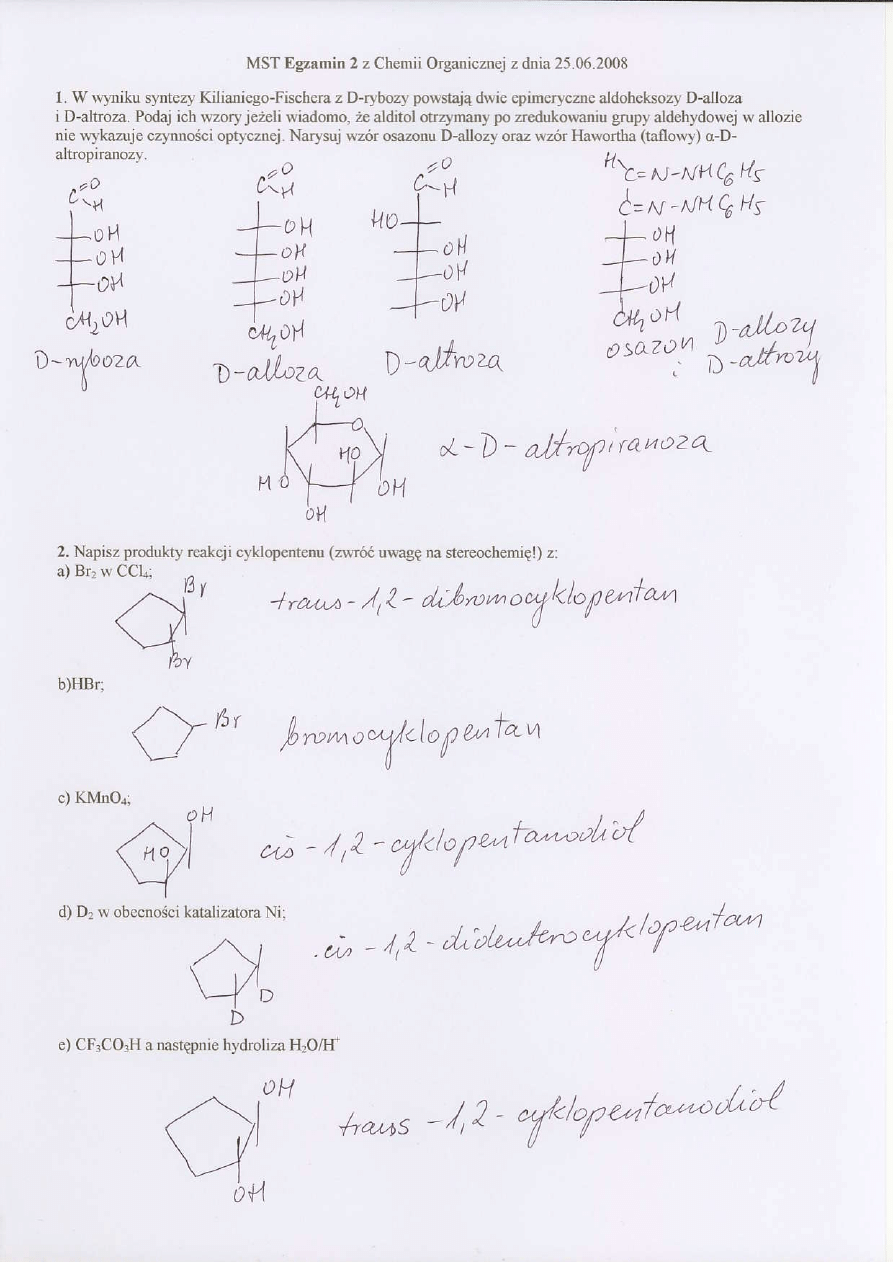 MST Egzamin 2 z Chemii Organicznej z dnia 25.06.2008
1. W wyniku syntezy Kilianiego-Fischera z D-rybozy powstają dwie epimeryczne aldoheksozy D-alloza
i D-altroza. Podaj ich wzory jeżeli wiadomo, że alditol otrzymany po zredukowaniu grupy aldehydowej w allozie
nie wykazuje czynności optycznej. Narysuj wzór osazonu D-allozy oraz wzór Hawortha (taflowy) α-D-
altropiranozy.
C=O H
OH
OH
OH
CH₂OH
D-ryboza
C=O H
OH
OH
OH
OH
CH₂OH
D-alloza
C=O H
HO
OH
OH
OH
CH₂OH
D-altroza
H C=N-NHC₆H₅
C=N-NHC₆H₅
OH
OH
OH
CH₂OH
osazon D-allozy
i D-altrozy
CH₂OH
O
HO
HO OH
OH
α-D-altropiranoza
2. Napisz produkty reakcji cyklopentenu (zwróć uwagę na stereochemię!) z:
a) Br₂ w CCl₄;
Br
Br
trans-1,2-dibromocyklopentan
b)HBr;
Br
bromocyklopentan
c) KMnO₄;
OH
HO
cis-1,2-cyklopentanodiol
d) D₂ w obecności katalizatora Ni;
D
D
cis-1,2-dideuterocyklopentan
e) CF₃CO₃H a następnie hydroliza H₂O/H⁺
OH
OH
trans-1,2-cyklopentanodiol